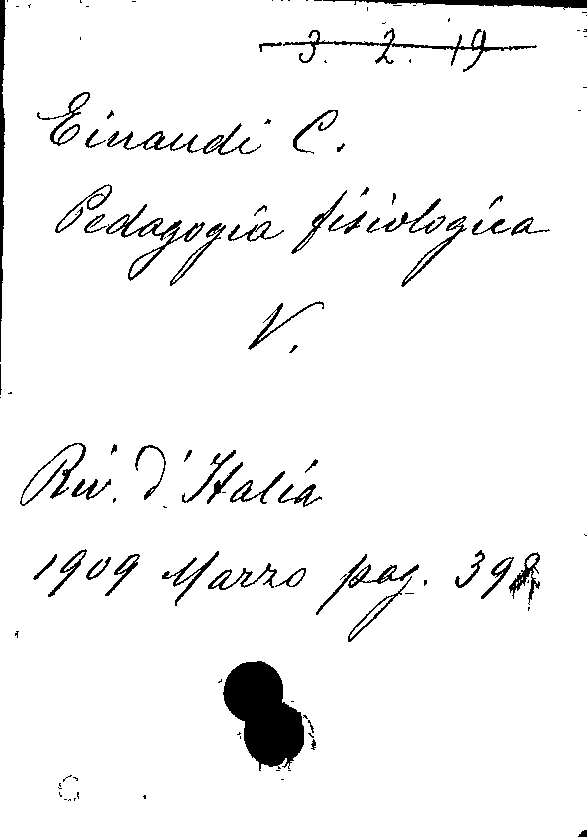 3. 2. 19
Einaudi C.
Pedagogia fisiologica
V.
Riv. d'Italia
1909 Marzo pag.